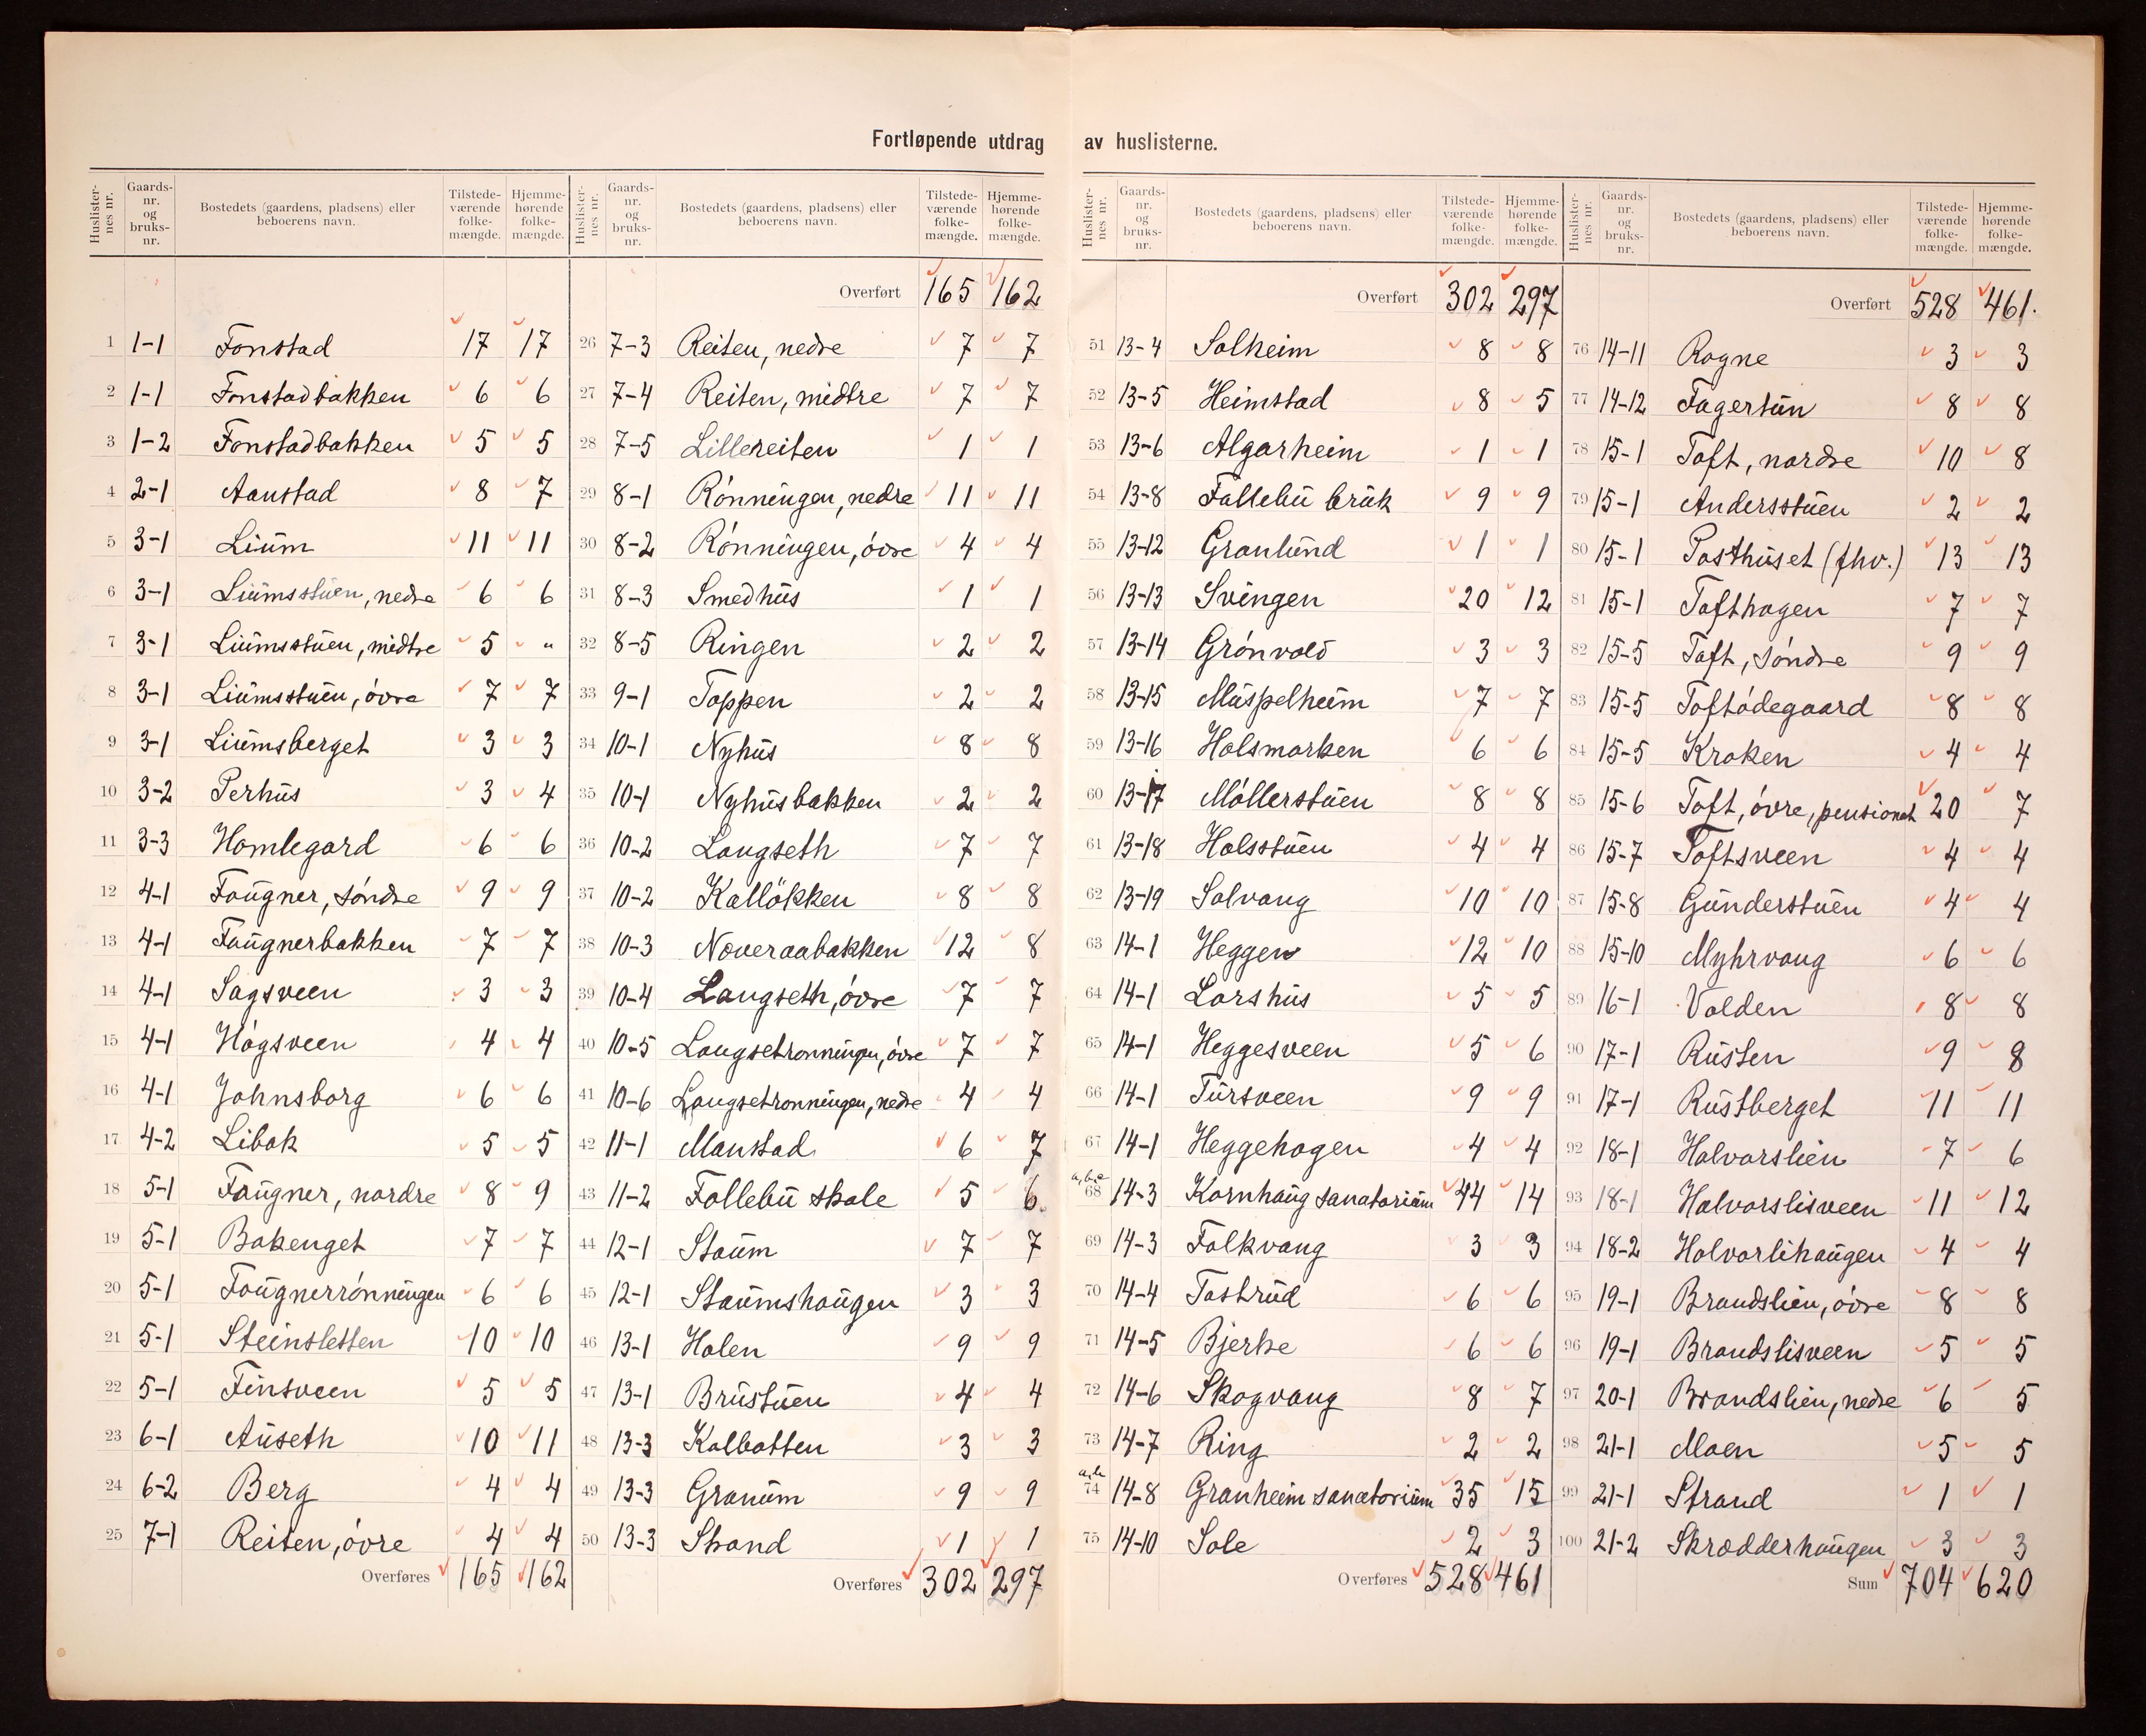 Fortløpende utdrag av huslisterne.
Huslister-nes nr. Gaards-nr. og bruks-nr. Bostedets (gaardens, pladsens) eller beboerens navn. Tilstede-værende folke-mængde. Hjemme-hørende folke-mængde.
1 1-1 Fonstad 17 17
2 1-1 Fonstadbakken 6 6
3 1-2 Fonstadbakken 5 5
4 2-1 Aanstad 8 7
5 3-1 Lium 11 11
6 3-1 Liumsstuen, nedre 6 6
7 3-1 Liumsstuen, midtre 5 "
8 3-1 Liumsstuen, óvre 7 7
9 3-1 Liumsberget 3 3
10 3-2 Perhus 3 4
11 3-3 Homlegard 6 6
12 4-1 Fougner, sóndre 9 9
13 4-1 Faugnerbakken 7 7
14 4-1 Sagsveen 3 3
15 4-1 Hógsveen 4 4
16 4-1 Johnsborg 6 6
17 4-2 Libak 5 5
18 5-1 Faugner, nordre 8 9
19 5-1 Bakenget 7 7
20 5-1 Fougnerrónningen 6 6
21 5-1 Steinsletten 10 10
22 5-1 Finsveen 5 5
23 6-1 Auseth 10 11
24 6-2 Berg 4 4
25 7-1 Reiten, óvre 4 4
Overføres 165 162
Huslister-nes nr. Gaards-nr. og bruks-nr. Bostedets (gaardens, pladsens) eller beboerens navn. Tilstede-værende folke-mængde. Hjemme-hørende folke-mængde.
Overført 165 162
26 7-3 Reiten, nedre 7 7
27 7-4 Reiten, midtre 7 7
28 7-5 Lillereiten 1 1
29 8-1 Rónningen, nedre 11 11
30 8-2 Rónningen, óvre 4 4
31 8-3 Smedhus 1 1
32 8-5 Ringen 2 2
33 9-1 Toppen 2 2
34 10-1 Nyhus 8 8
35 10-1 Nyhusbakken 2 2
36 10-2 Langseth 7 7
37 10-2 Kallökken 8 8
38 10-3 Noveraabakken 12 8
39 10-4 Langseth, óvre 7 7
40 10-5 Langsetronningen, óvre 7 7
41 10-6 Langsetronningen, nedre 4 4
42 11-1 Manstad 6 7
43 11-2 Follebu skole 5 6
44 12-1 Staum 7 7
45 12-1 Staumshaugen 3 3
46 13-1 Holen 9 9
47 13-1 Brustuen 4 4
48 13-3 Kolbotten 3 3
49 13-3 Granum 9 9
50 13-3 Strand 1 1
Overføres 302 297
Huslister-nes nr. Gaards-nr. og bruks-nr. Bostedets (gaardens, pladsens) eller beboerens navn. Tilstede-værende folke-mængde. Hjemme-hørende folke-mængde.
Overført 302 297
51 13-4 Solheim 8 8
52 13-5 Heimstad 8 5
53 13-6 Algarheim 1 1
54 13-8 Follebu bruk 9 9
55 13-12 Granlund 1 1
56 13-13 Svingen 20 12
57 13-14 Grónvold 3 3
58 13-15 Muspelheim 7 7
59 13-16 Holsmarken 6 6
60 13-17 Móllerstuen 8 8
61 13-18 Holsstuen 4 4
62 13-19 Solvang 10 10
63 14-1 Heggen 12 10
64 14-1 Larshus 5 5
65 14-1 Heggesveen 5 6
66 14-1 Tursveen 9 9
67 14-1 Heggehagen 4 4
a,b,c 68 14-3 Kornhaug sanatorium 44 14
69 14-3 Folkvang 3 3
70 14-4 Tostrud 6 6
71 14-5 Bjerke 6 6
72 14-6 Skogvang 8 7
73 14-7 Ring 2 2
a,b 74 14-8 Granheim sanatorium 35 15
75 14-10 Sole 2 3
Overføres 528 461
Huslister-nes nr. Gaards-nr. og bruks-nr. Bostedets (gaardens, pladsens) eller beboerens navn. Tilstede-værende folke-mængde. Hjemme-hørende folke-mængde.
Overført 528 461.
76 14-11 Rogne 3 3
77 14-12 Fagertun 8 8
78 15-1 Toft, nordre 10 8
79 15-1 Andersstuen 2 2
80 15-1 Posthuset (fhv.) 13 13
81 15-1 Tofthagen 7 7
82 15-5 Toft, sóndre 9 9
83 15-5 Toftódegaard 8 8
84 15-5 Kroken 4 4
85 15-6 Toft, óvre, pensionat 20 7
86 15-7 Toftsveen 4 4
87 15-8 Gunderstuen 4 4
88 15-10 Myhrvang 6 6
89 16-1 Volden 8 8
90 17-1 Rusten 9 8
91 17-1 Rustberget 11 11
92 18-1 Halvorslien 7 6
93 18-1 Halvorslisveen 11 12
94 18-2 Holvorlihaugen 4 4
95 19-1 Brandslien, óvre 8 8
96 19-1 Brandslisveen 5 5
97 20-1 Brandslien, nedre 6 5
98 21-1 Moen 5 5
99 21-1 Strand 1 1
100 21-2 Skrædderhaugen 3 3
Sum 704 620